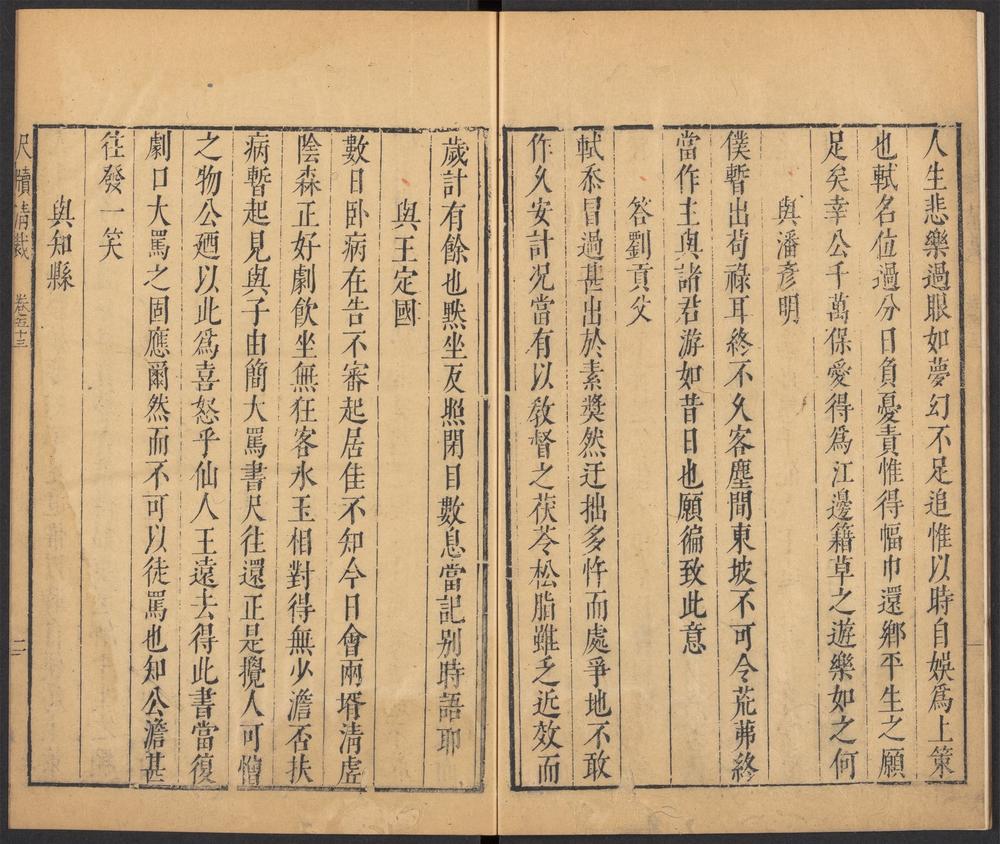 人生悲樂過眼如夢幻不足追惟以時自娛爲上策
也軾名位過分日負憂責惟得幅巾還鄉平生之願
足矣幸公千萬保愛得爲江邊籍草之遊樂如之何
與潘彥明
僕暫出苟祿耳終不久客塵間東坡不可令荒茀終
當作主與諸君游如昔日也願徧致此意
答劉貢父
軾忝冒過甚出於素獎然迂拙多忤而處爭地不敢
作久安計况當有以敎督之茯苓松脂雖乏近效而
歲計有餘也默坐反照閉目數息當記别時語耶
與王定國
數日卧病在告不審起居佳不知今日會兩壻清虗
陰森正好劇飲坐無狂客氷玉相對得無少澹否扶
病暫起見與子由簡大罵書尺往還正是攪人可憎
之物公廼以此爲喜怒乎仙人王遠去得此書當復
劇口大罵之固應爾然而不可以徒罵也知公澹甚
往發一笑
與知縣
尺牘清裁
卷五十三
二